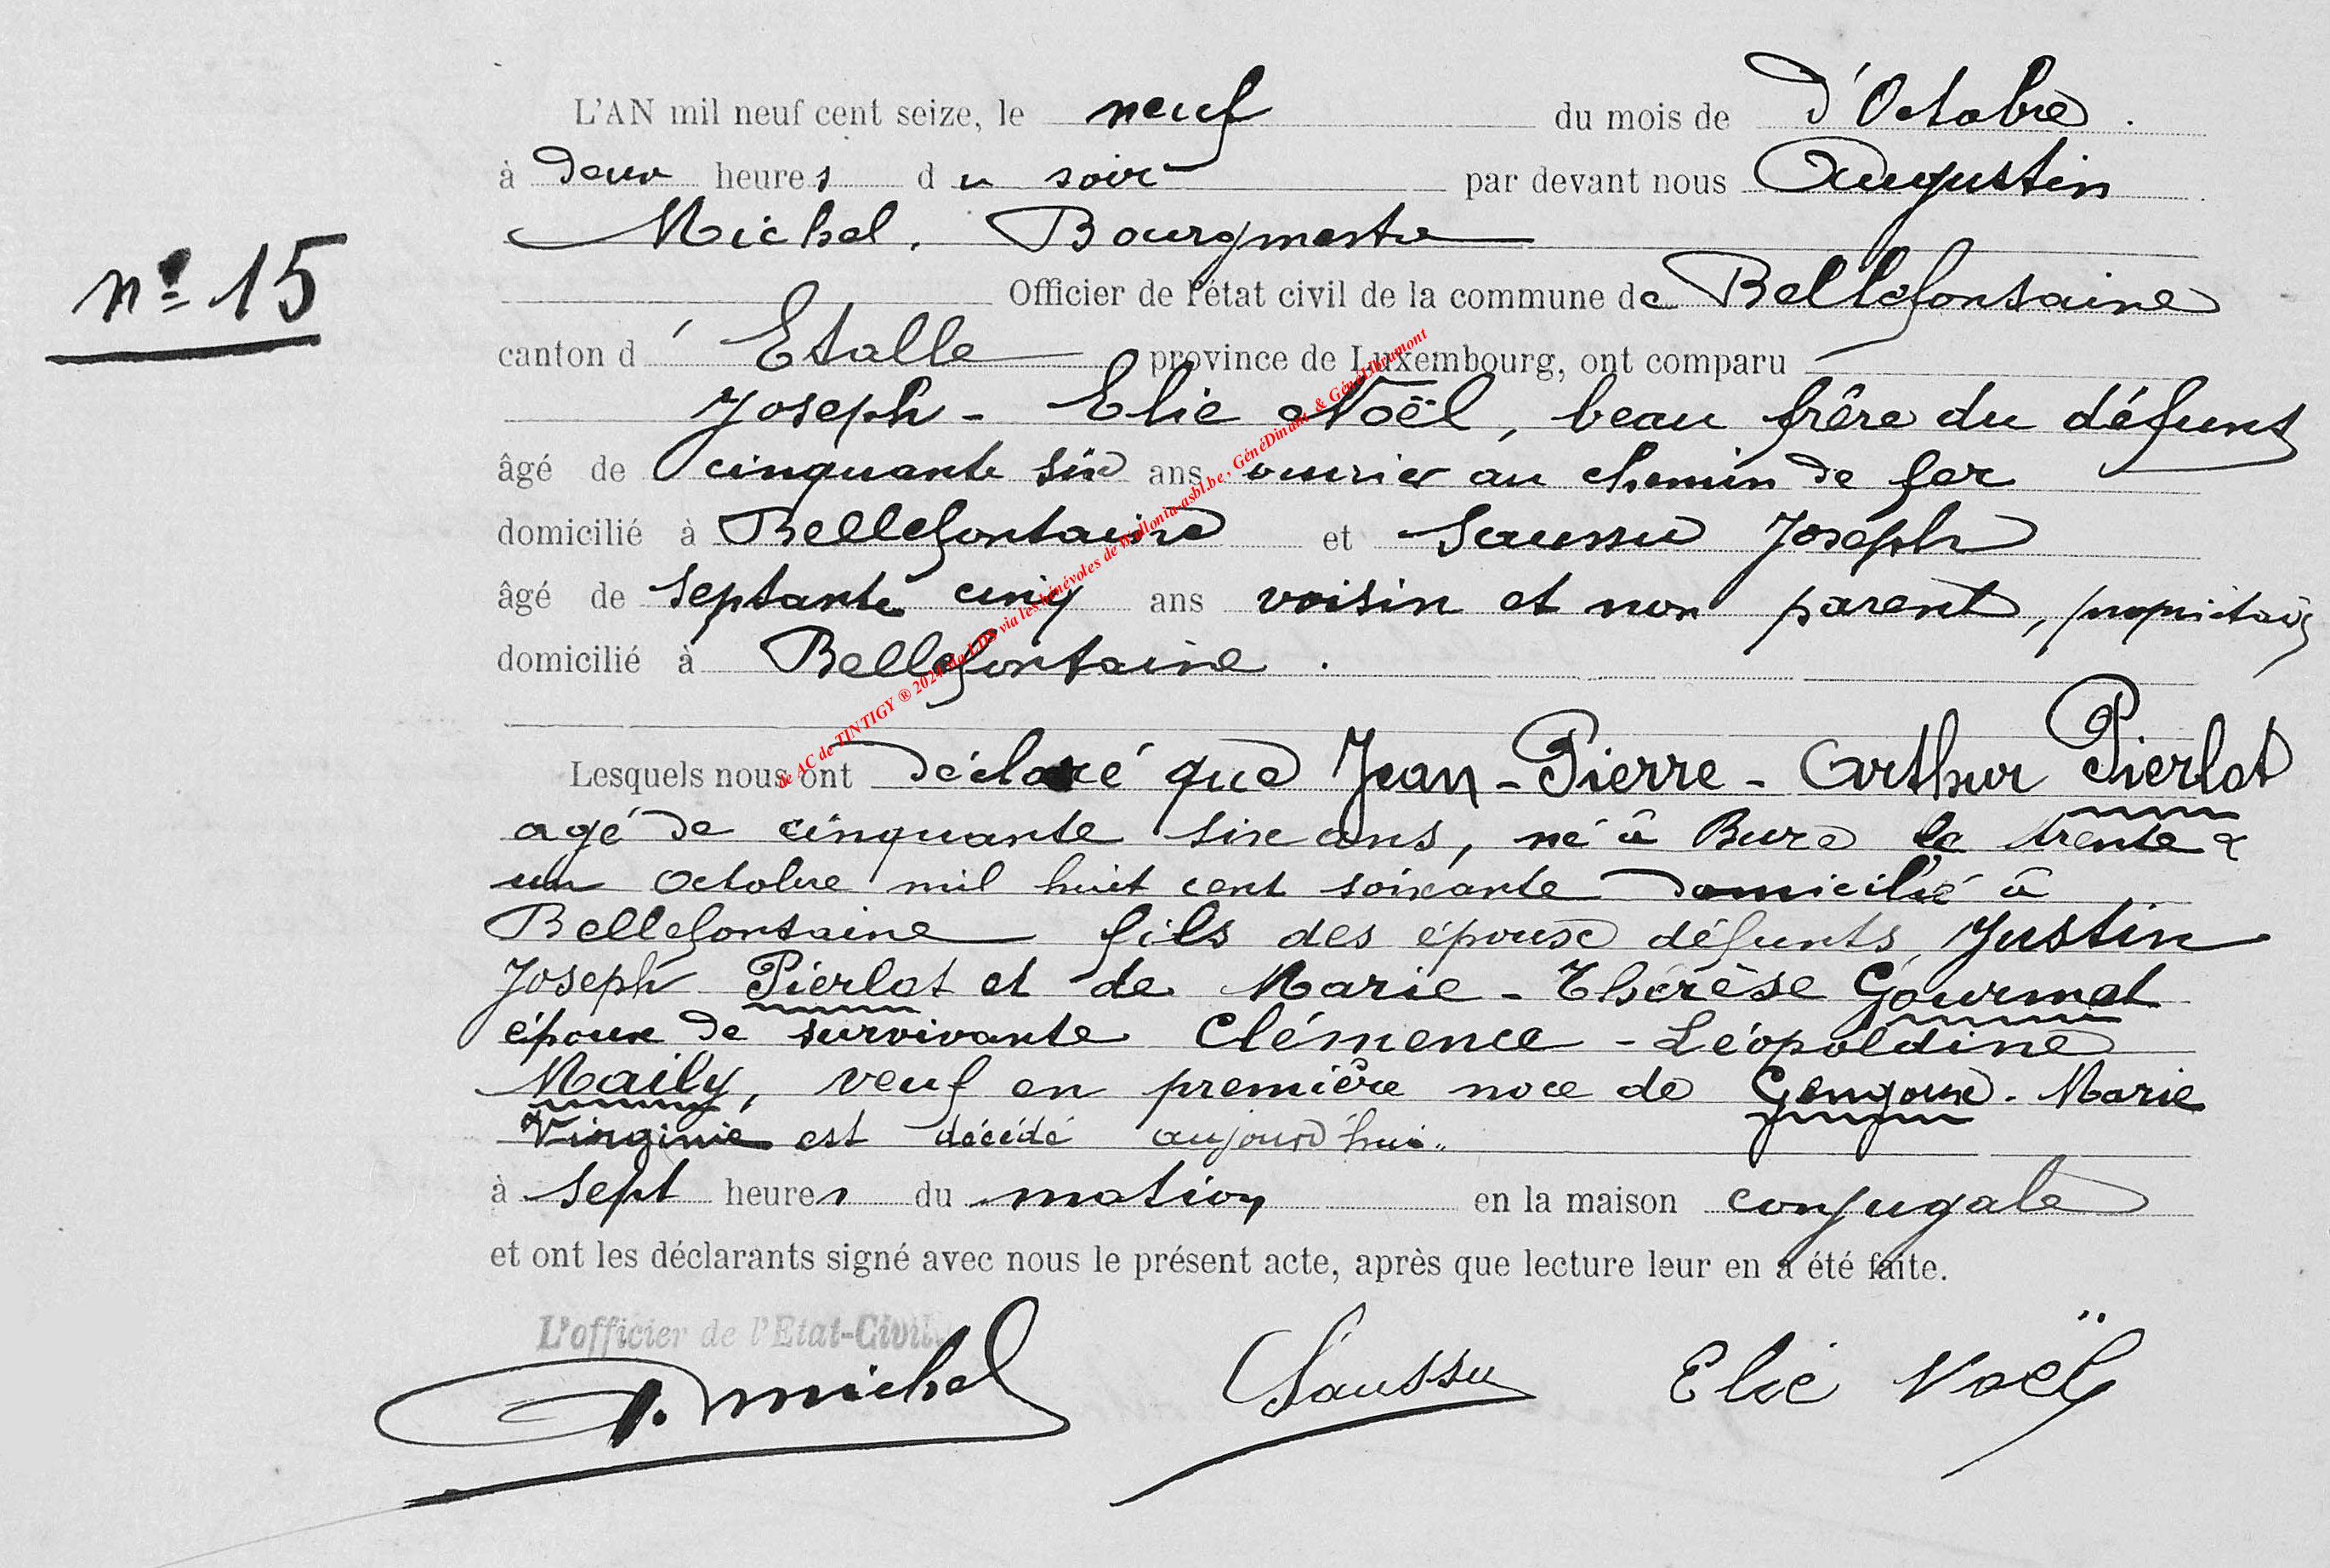 L'AN mil neuf cent seize, le neuf du mois de d'Octobre .
à deux heures du soir par devant nous Augustin
Michel, Bourgmestre
n° 15
Officier de l'état civil de la commune de Bellefontaine
canton d' Etalle province de Luxembourg, ont comparu
Joseph - Elie Noël, beau frère du défunt
âgé de cinquante six ans ouvrier au chemin de fer
domicilié à Bellefontaine et Saussu Joseph
âgé de septante cinq ans voisin et non parent, propriétaire
domicilié à Bellefontaine .
de AC de TINTIGY ® 2024 via les bénévoles de Wallonia-asbl.be, GénéDinant & GénéLibramont
Lesquels nous ont déclaré que Jean-Pierre-Arthur Pierlot
agé de cinquante six ans, né à Bure le trente &
un octobre mil huit cent soixante domicilié à
Bellefontaine fils des époux défunts Justin
Joseph Pierlot et de Marie-Thérèse Gourmet
époux de survivante Clémence-Léopoldine
Maily, veuf en première noce de Gengoux-Marie
Virginie est décédé aujourd'hui
à sept heures du matin, en la maison conjugale
et ont les déclarants signé avec nous le présent acte, après que lecture leur en a été faite.
L'officier de l'Etat-Civil,
A. Michel Saussu Elie Noël